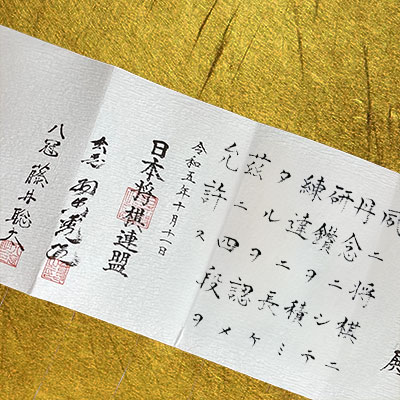 殿
夙ニ将棋ニ
丹念ニシテ
研鑽ヲ積ミ
練達ニ長ケ
タルヲ認メ
茲ニ四段ヲ
允許ス
令和五年十月十一日
日本将棋連盟
会長 羽生善治
八冠 藤井聡太